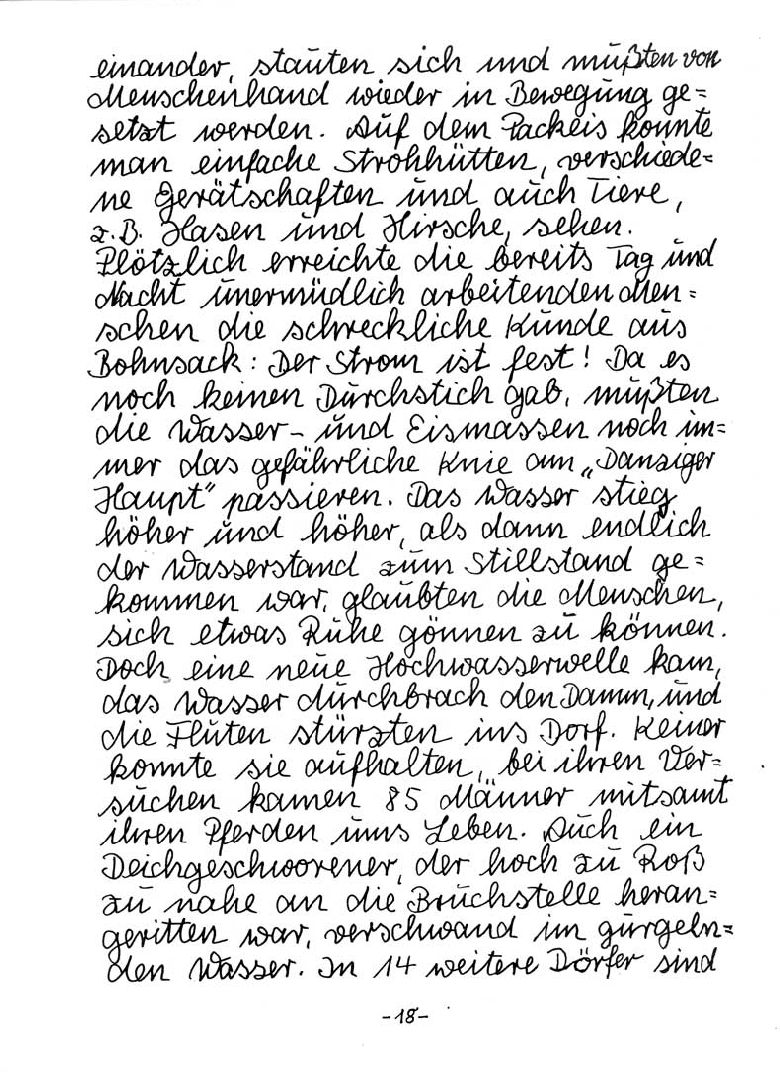 einander, stauten sich und mußten von
Menschenhand wieder in Bewegung ge=
setzt werden. Auf dem Packeis konnte
man einfache Strohhütten, verschiede=
ne Gerätschaften und auch Tiere,
z.B. Hasen und Hirsche, sehen.
Plötzlich erreichte die bereits Tag und
Nacht unermüdlich arbeitenden Men=
schen die schreckliche Kunde aus
Bohnsack: Der Strom ist fest! Da es
noch keinen Durchstich gab, mußten
die Wasser- und Eismassen noch im=
mer das gefährliche Knie am „Danziger
Haupt“ passieren. Das Wasser stieg
höher und höher, als dann endlich
der Wasserstand zum Stillstand ge=
kommen war, glaubten die Menschen,
sich etwas Ruhe gönnen zu können.
Doch eine neue Hochwasserwelle kam,
das Wasser durchbrach den Damm, und
die Fluten stürzten ins Dorf. Keiner
konnte sie aufhalten, bei ihren Ver=
suchen kamen 85 Männer mitsamt
ihren Pferden ums Leben. Auch ein
Deichgeschworener, der hoch zu Roß
zu nahe an die Bruchstelle heran=
geritten war, verschwand im gurgeln=
den Wasser. In 14 weitere Dörfer sind
-18-